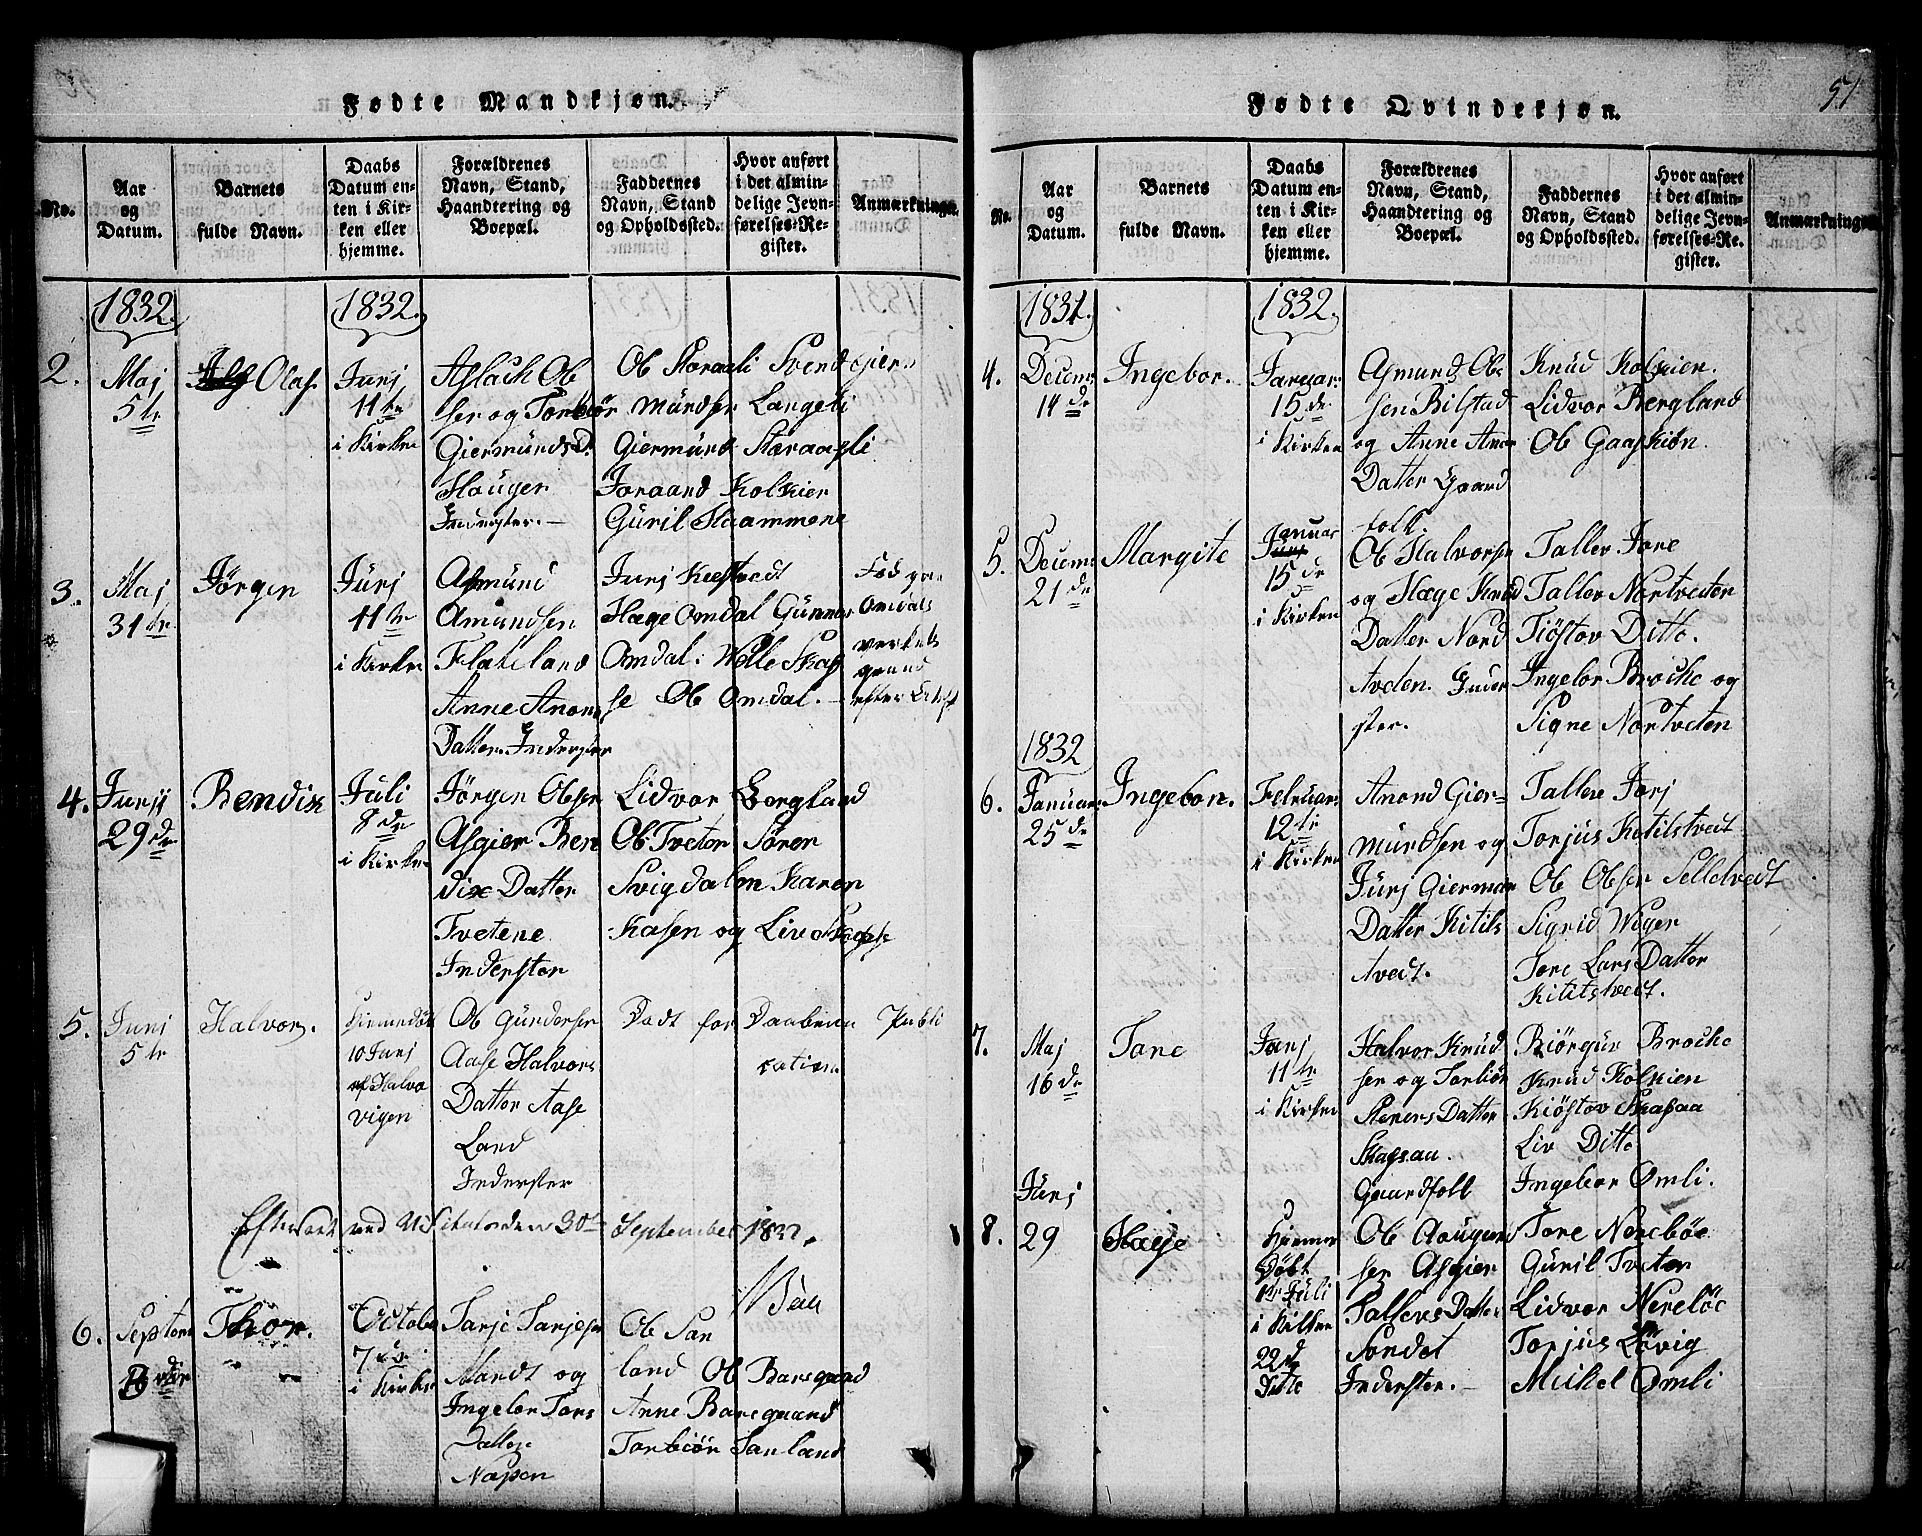 Fødte Mandkjøn.
No.
Aar og Datum.
Barnets fulde Navn.
Daabs Datum enten i Kirken eller hjemme.
Forældrenes Navn, Stand, Haandtering og Boepæl.
Faddernes Navn, Stand og Opholdssted.
Hvor anført i det almindelige Jevnførelses-Register.
Anmærkninger.
1832.
1832.
2.
Maj
5te
Olaf.
Junj
11te
i Kirken
Aslach Ol
sen og Torbiør
Giermunds D.
Hauger
Inderster.
Ol Storaali Svend Gier
mundsen Langeli
Giermund Storaasli
Joraand Kolkier
Guril Haammene
3.
Maj
31te
Jørgen
Junj
11te
i Kirken
Asmund
Amundsen
Flateland
Anne Anon
Datter. Inderster
Junj
Hæge Omdal Gunner
Omdal. Wolle Skaf
se Ol Omdal.
Fød paa
Omdals
verkets
grund
efter
4.
Junij
29de
Bendix
Juli
8de
i Kirken
Jørgen Olsen
Asgier Ben
dix Datter
Tvetene
Inderster
Lidvor Borgland
Ol Tveter Søren
Svigdalm Karen
Kasen og Liv
5.
Junj
5te
Halvor.
hiemmedøbt
10 Junj
af Halvo
vigen
Ol Gundersen
Aase Halvors
Datter Aase
Land
Inderster
Dødt for Daabens Publi
cation
Efterseet ved Visitatsen den 30te September 1832.
6.
Septem
Thor.
October
7de
i Kirken
Tarje Tarjesen
Sandt og
Ingebor Tors
Datter
Napen
Ol San
land Ol Baregaard
Anne Baregaard
Torbiør Sanland
Fødte Qvindekjøn.
51
No.
Aar og Datum.
Barnets fulde Navn.
Daabs Datum enten i Kirken eller hjemme.
Forældrenes Navn, Stand, Haandtering og Boepæl.
Faddernes Navn, Stand og Opholdssted.
Hvor anført i det almindelige Jevnførelses-Register.
Anmærkninger.
1831.
1832.
4.
Decem
14de
Ingebor.
Januar
15de
i Kirken
Asmund Ol
sen Bilstad
og Anne Anon
Datter Gaard
folk.
Knud Kolkien.
Lidvor Bergland
Ol Gaaskiøn.
5.
Decem
21de
Margite
Januar
15de
i Kirken
Ol Halvorsen
og Hæge Knud
Datter Nord
tveten. Inder
ster.
Tallev Jore
Tallev Nortveten
Tiøstov Ditto.
Ingebor Brocke og
Signe Nortveten
1832
6.
Januar
25de
Ingebor.
Februar
12te
i Kirken
Anond Gier
mundsen og
Junj Giermun
Datter Kitils
tvedt.
Tallev Jorj
Torjus Kitilstvedt
Ol Olsen Selletvedt
Sigrid Wiger
Tore Lars Datter
Kitilstvedt.
7.
Maj
16de
Tone
Junj
11te
i Kirken
Halvor Knud
sen og Torbiør
Stenersdatter
Skaasaa.
Gaardfolk
Biørgur Brocke
Knud Kolkien
Kiøstov Skasaa
Liv Ditto
Ingebor Omli.
Junj
8.
29
Hæge
Hjemme
Døbt
1te Juli
i Kirken
22de
Ditto
Ol Aougun
sen Asgier
Tallevs Datter
Sondet
Inderster.
Tore Nerebøe
Guril Tveter
Lidvor Nerebøe
Torjus Løvig
Mickel Omli